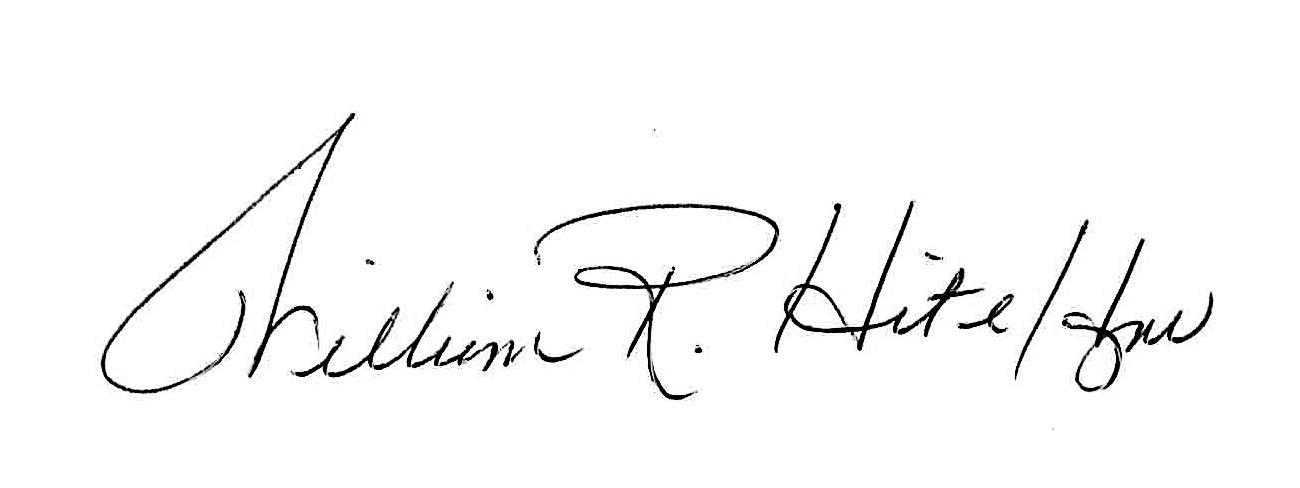 William R. Hite/